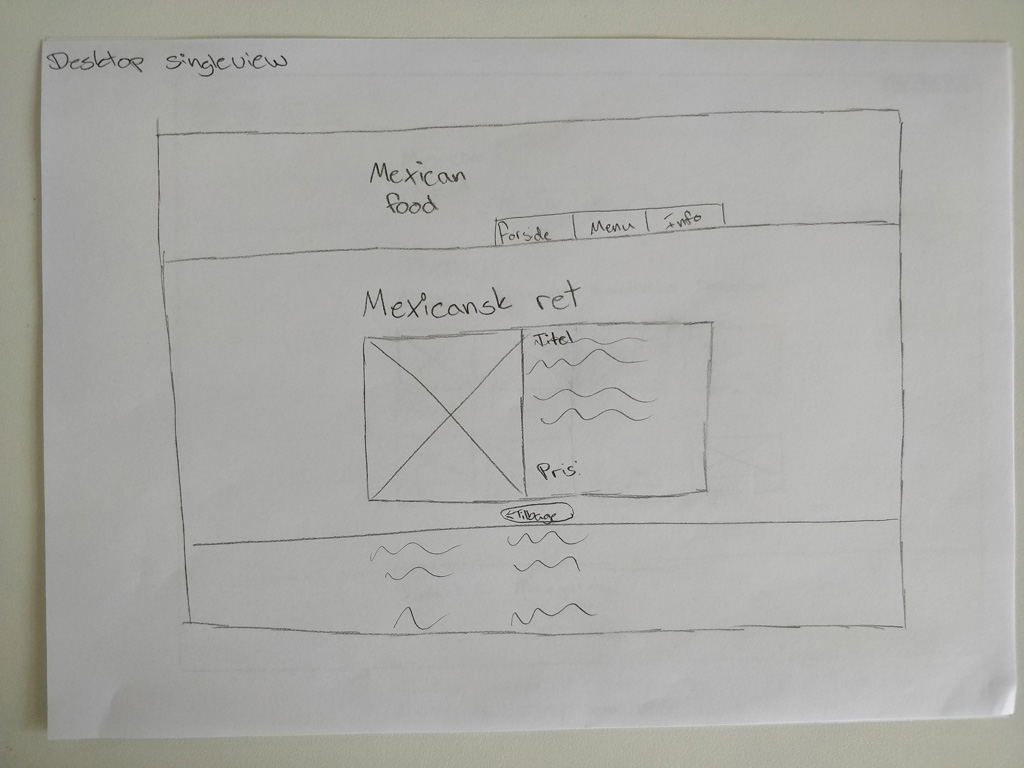 Desktop singleview
Mexican
food
Forside Menu Info
Mexicansk ret
Titel
Pris
← Tilbage